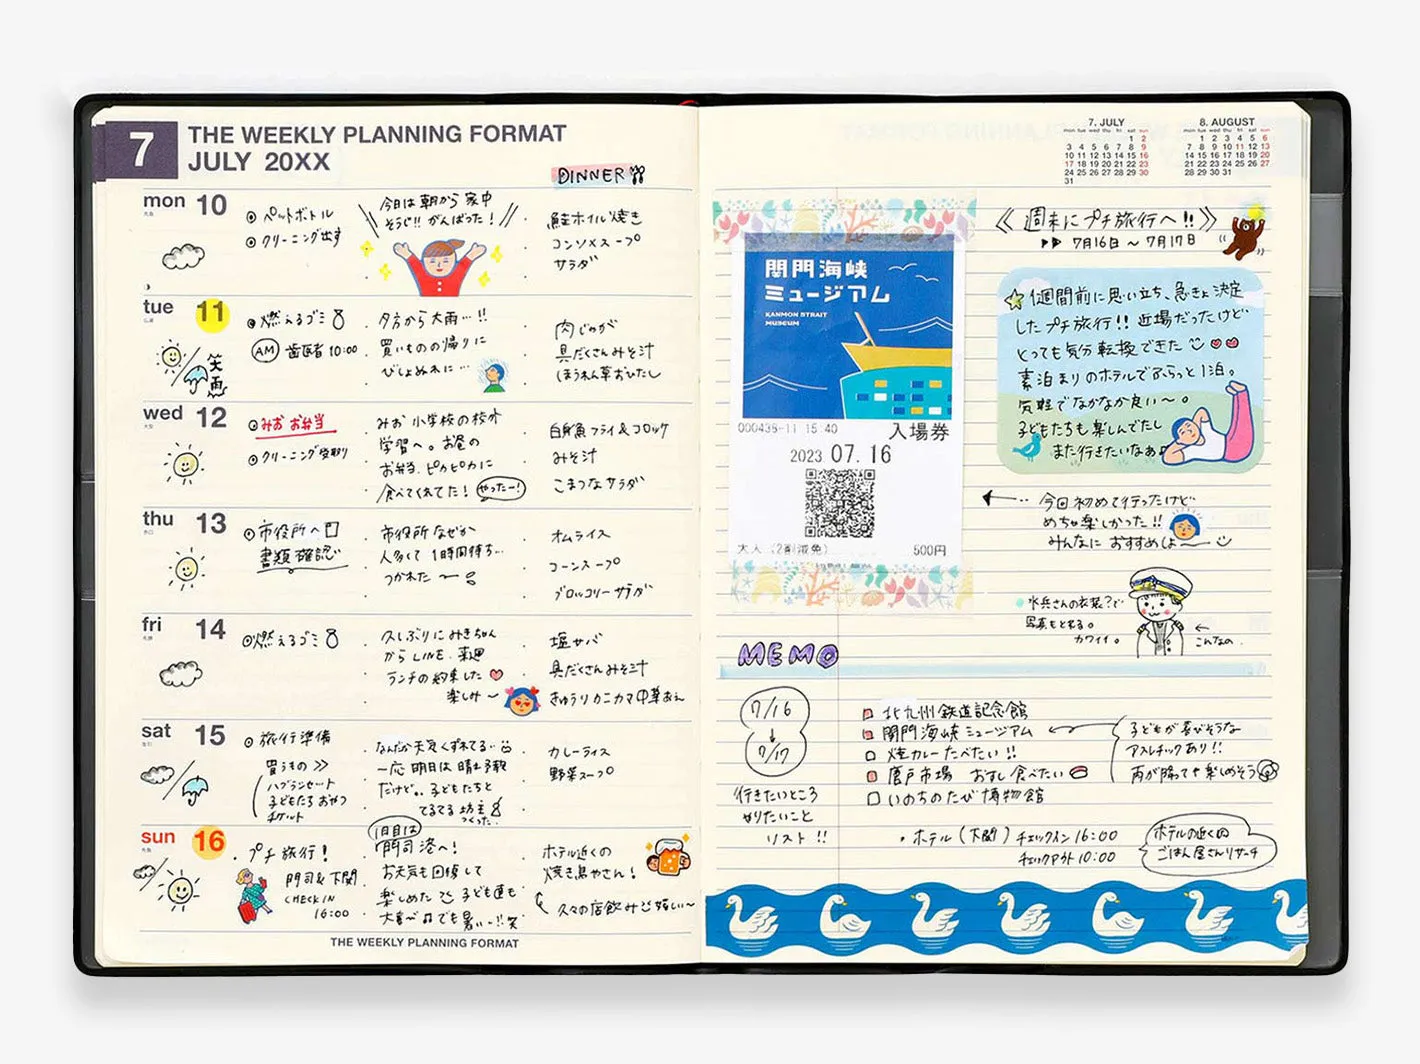 7
THE WEEKLY PLANNING FORMAT
JULY 20XX
DINNER
mon 10
ペットボトル
クリーニング出す
今日は朝から家中
そうじ!! がんばった!
鮭ホイル焼き
コンソメスープ
サラダ
tue 11
燃えるゴミ
AM 歯医者 10:00
夕方から大雨…!!
買いものの帰りに
びしょぬれに…
肉じゃが
具だくさんみそ汁
ほうれん草おひたし
wed 12
みお お弁当
クリーニング受取り
みお 小学校の校外
学習へ。お昼の
お弁当、ピカピカに
食べてくれてた!
やったー!
白身魚フライ&コロッケ
みそ汁
こまつなサラダ
thu 13
市役所へ
書類確認
市役所なぜか
人多くて 1時間待ち…
つかれた〜
オムライス
コーンスープ
ブロッコリーサラダ
fri 14
燃えるゴミ
久しぶりにみきちゃん
からLINE. 来週
ランチの約束した
楽しみ〜
塩サバ
具だくさんみそ汁
きゅうりカニカマ中華あえ
sat 15
旅行準備
買うもの >>
ハブラシセット
子どもたち おやつ
チケット
なんだか天気くずれてる…
一応明日は晴れ予報
だけど。。子どもたちと
てるてる坊主
つくった。
カレーライス
野菜スープ
sun 16
プチ旅行!
門司&下関
CHECK IN
16:00
1日目は
門司港へ!
お天気も回復して
楽しめた 子ども達も
大喜び でも暑い…!! 笑
ホテル近くの
焼き鳥やさん!
久々の店飲み 嬉しい〜
THE WEEKLY PLANNING FORMAT
7. JULY
mon tue wed thu fri sat sun
1 2
3 4 5 6 7 8 9
10 11 12 13 14 15 16
17 18 19 20 21 22 23
24 25 26 27 28 29 30
31
8. AUGUST
mon tue wed thu fri sat sun
1 2 3 4 5 6
7 8 9 10 11 12 13
14 15 16 17 18 19 20
21 22 23 24 25 26 27
28 29 30 31
関門海峡
ミュージアム
KANMON STRAIT
MUSEUM
000435-11 15:40
入場券
2023 07.16
大人 (2割減免)
500円
《 週末にプチ旅行へ!! 》
7月16日 〜 7月17日
1週間前に思い立ち、急きょ決定
したプチ旅行!! 近場だったけど
とっても気分転換できた
素泊まりのホテルでふらっと1泊。
気軽でなかなか良い〜。
子どもたちも楽しんでたし
また行きたいなぁ
今回初めて行ったけど
めちゃ楽しかった!!
みんなに おすすめしよ〜
水兵さんの衣装?で
写真もとれる。
カワイイ。
こんなの
MEMO
7/16
↓
7/17
行きたいところ
やりたいこと
リスト!!
北九州鉄道記念館
関門海峡ミュージアム
焼カレーたべたい!!
唐戸市場 おすし食べたい
いのちのたび博物館
子どもが喜びそうな
アスレチックあり!!
雨が降っても楽しめそう
・ホテル (下関) チェックイン 16:00
チェックアウト 10:00
ホテルの近くの
ごはん屋さんリサーチ